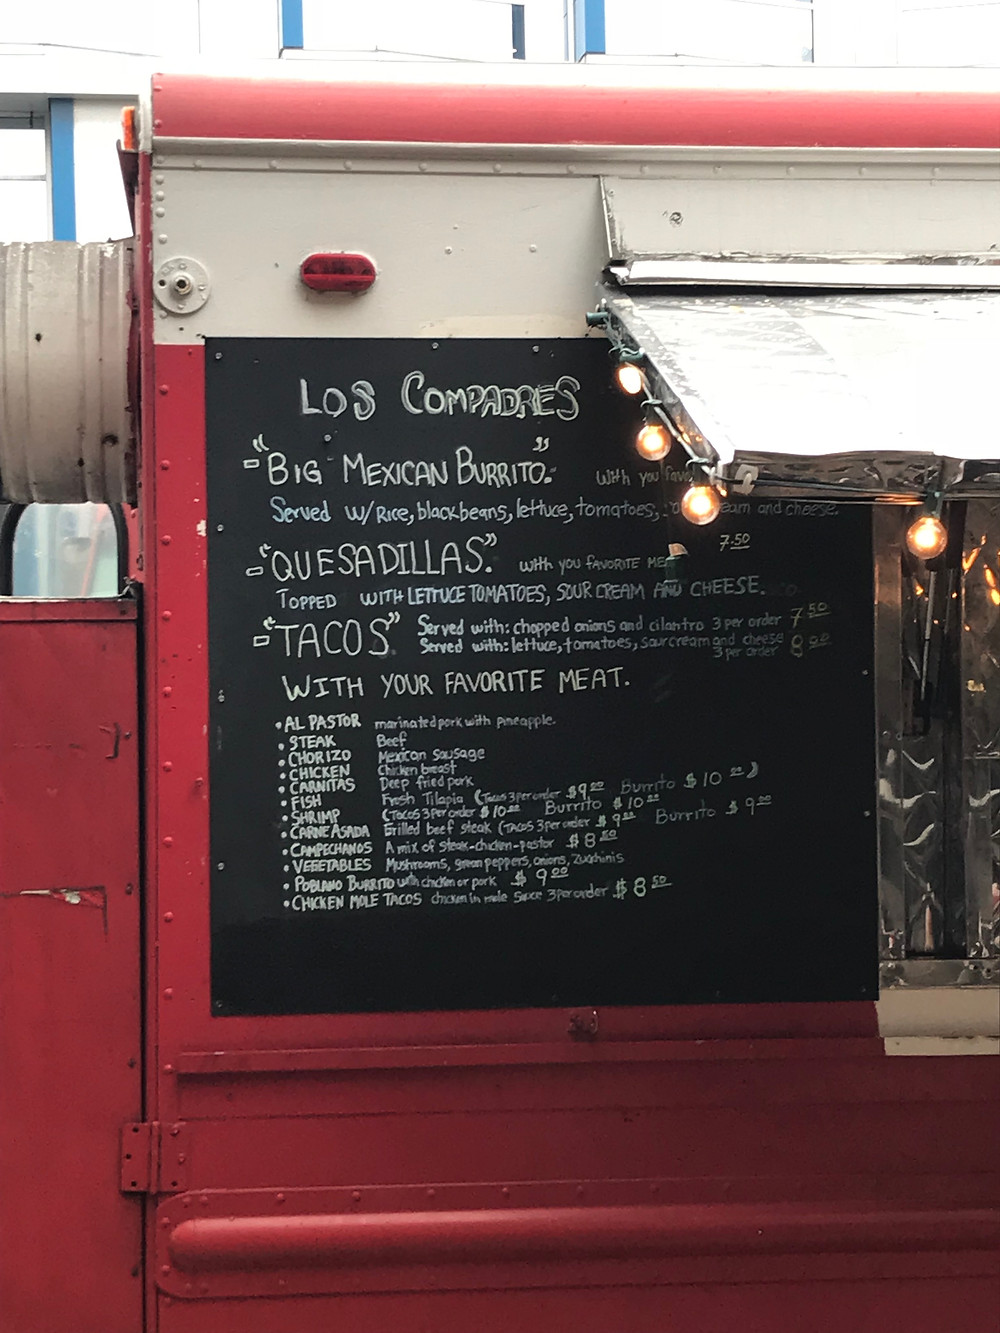 LOS COMPADRES
"BIG MEXICAN BURRITO." With you
Served w/Rice, blackbeans, lettuce, tomatoes, cream and cheese.
7.50
"QUESADILLAS." with you FAVORITE
TOPPED WITH LETTUCE TOMATOES, SOUR CREAM AND CHEESE.
"TACOS" Served with: chopped onions and cilantro 3 per order 7 50
Served with: lettuce, tomatoes, sour cream and cheese 8
3 per order
WITH YOUR FAVORITE MEAT.
• AL PASTOR marinated pork with pineapple.
• STEAK Beef
• CHORIZO Mexican sausage
• CHICKEN Chicken breast
• CARNITAS Deep fried pork
• FISH Fresh Tilapia (Tacos 3 per order $9 00 Burrito $10 00)
• SHRIMP (Tacos 3 Per order $10 00 Burrito $10 00
• CARNE ASADA Grilled beef steak (TACOS 3 per order $9 00 Burrito $9 00
• CAMPECHANOS A mix of steak-chicken-pastor $8 50
• VEGETABLES Mushrooms, green peppers, onions, Zucchinis
• POBLANO BURRITO with chicken or pork $9 00
• CHICKEN MOLE TACOS chicken in mole sauce 3 per order $8 50